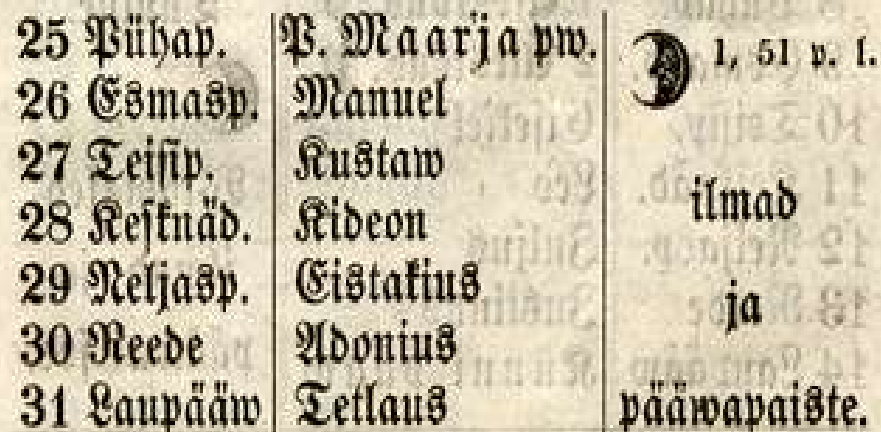 25 Pühap. P. Maarja pw. 1, 51 p. l.
26 Esmasp. Manuel
27 Teisip. Kustaw
28 Kesknäd. Kideon ilmad
29 Neljasp. Eistakius
30 Reede Adonius ja
31 Laupääw Tetlaus pääwapaiste.